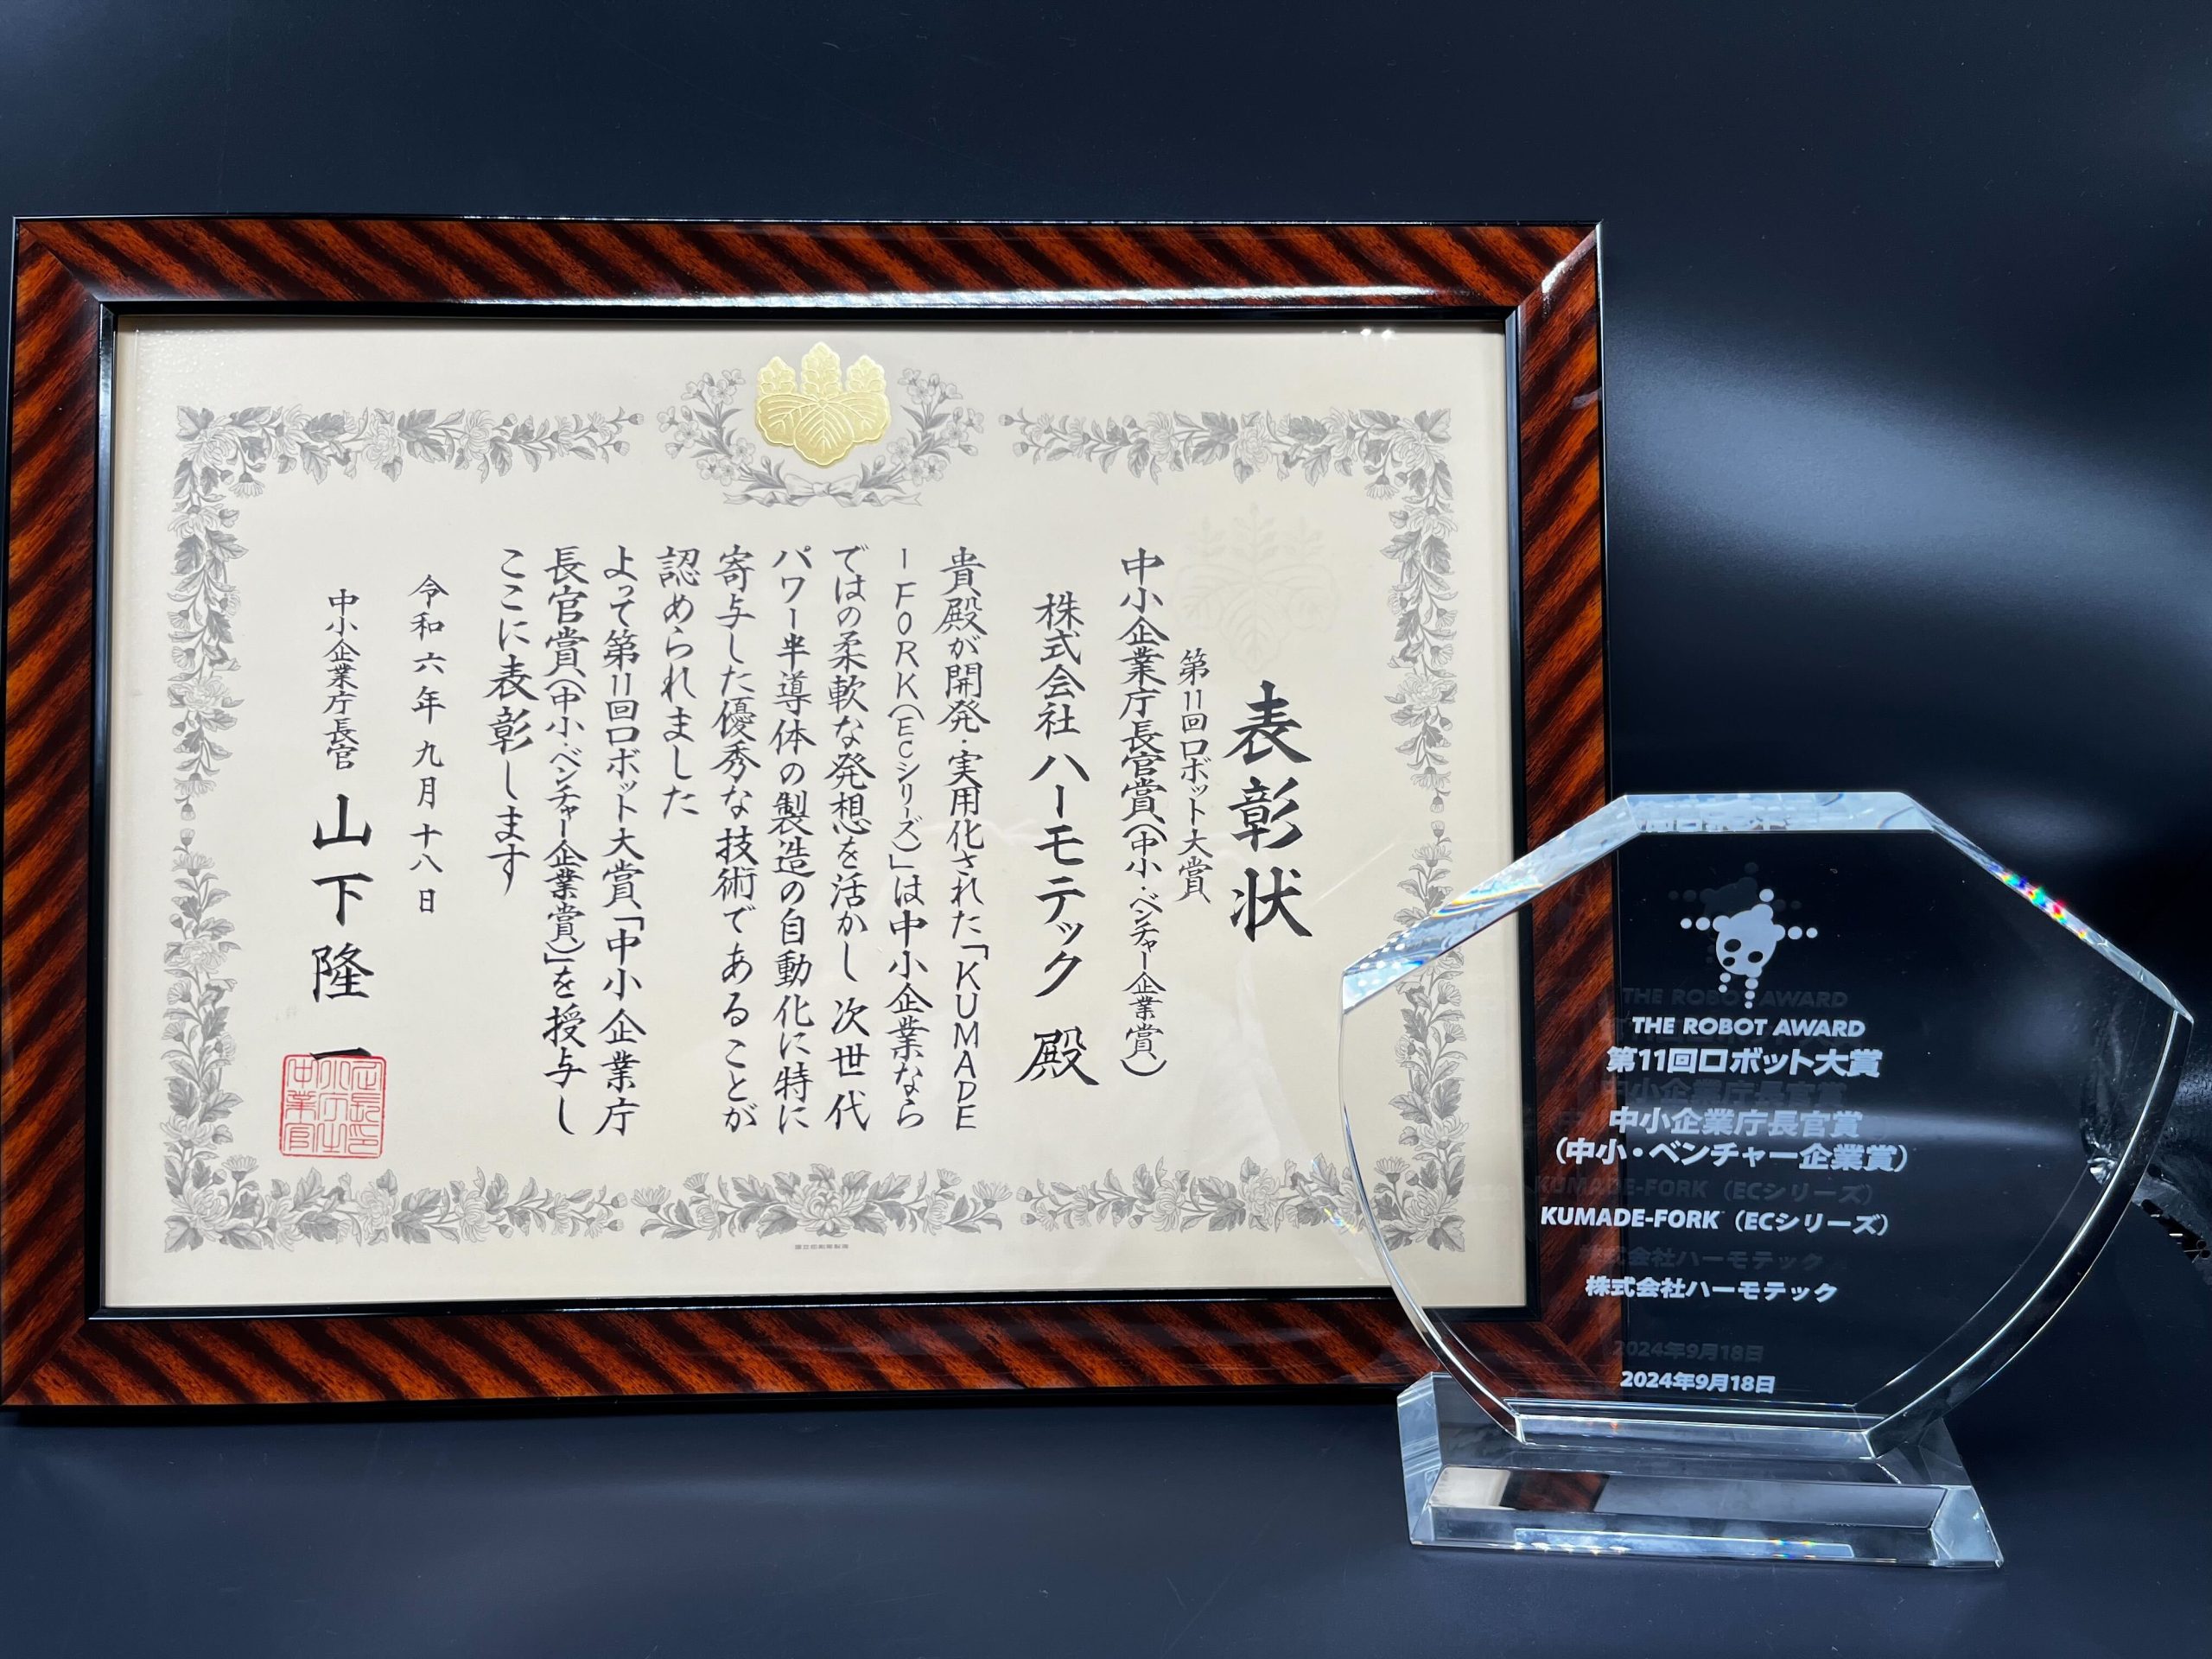 表彰状
第11回ロボット大賞
中小企業庁長官賞(中小・ベンチャー企業賞)
株式会社 ハーモテック 殿
貴殿が開発・実用化された「KUMADE
-FORK(ECシリーズ)」は中小企業なら
ではの柔軟な発想を活かし次世代
パワー半導体の製造の自動化に特に
寄与した優秀な技術であることが
認められました
よって第11回ロボット大賞「中小企業庁
長官賞(中小・ベンチャー企業賞)」を授与し
ここに表彰します
令和六年九月十八日
中小企業庁長官 山下隆一
THE ROBOT AWARD
第11回ロボット大賞
中小企業庁長官賞
(中小・ベンチャー企業賞)
KUMADE-FORK (ECシリーズ)
株式会社ハーモテック
2024年9月18日